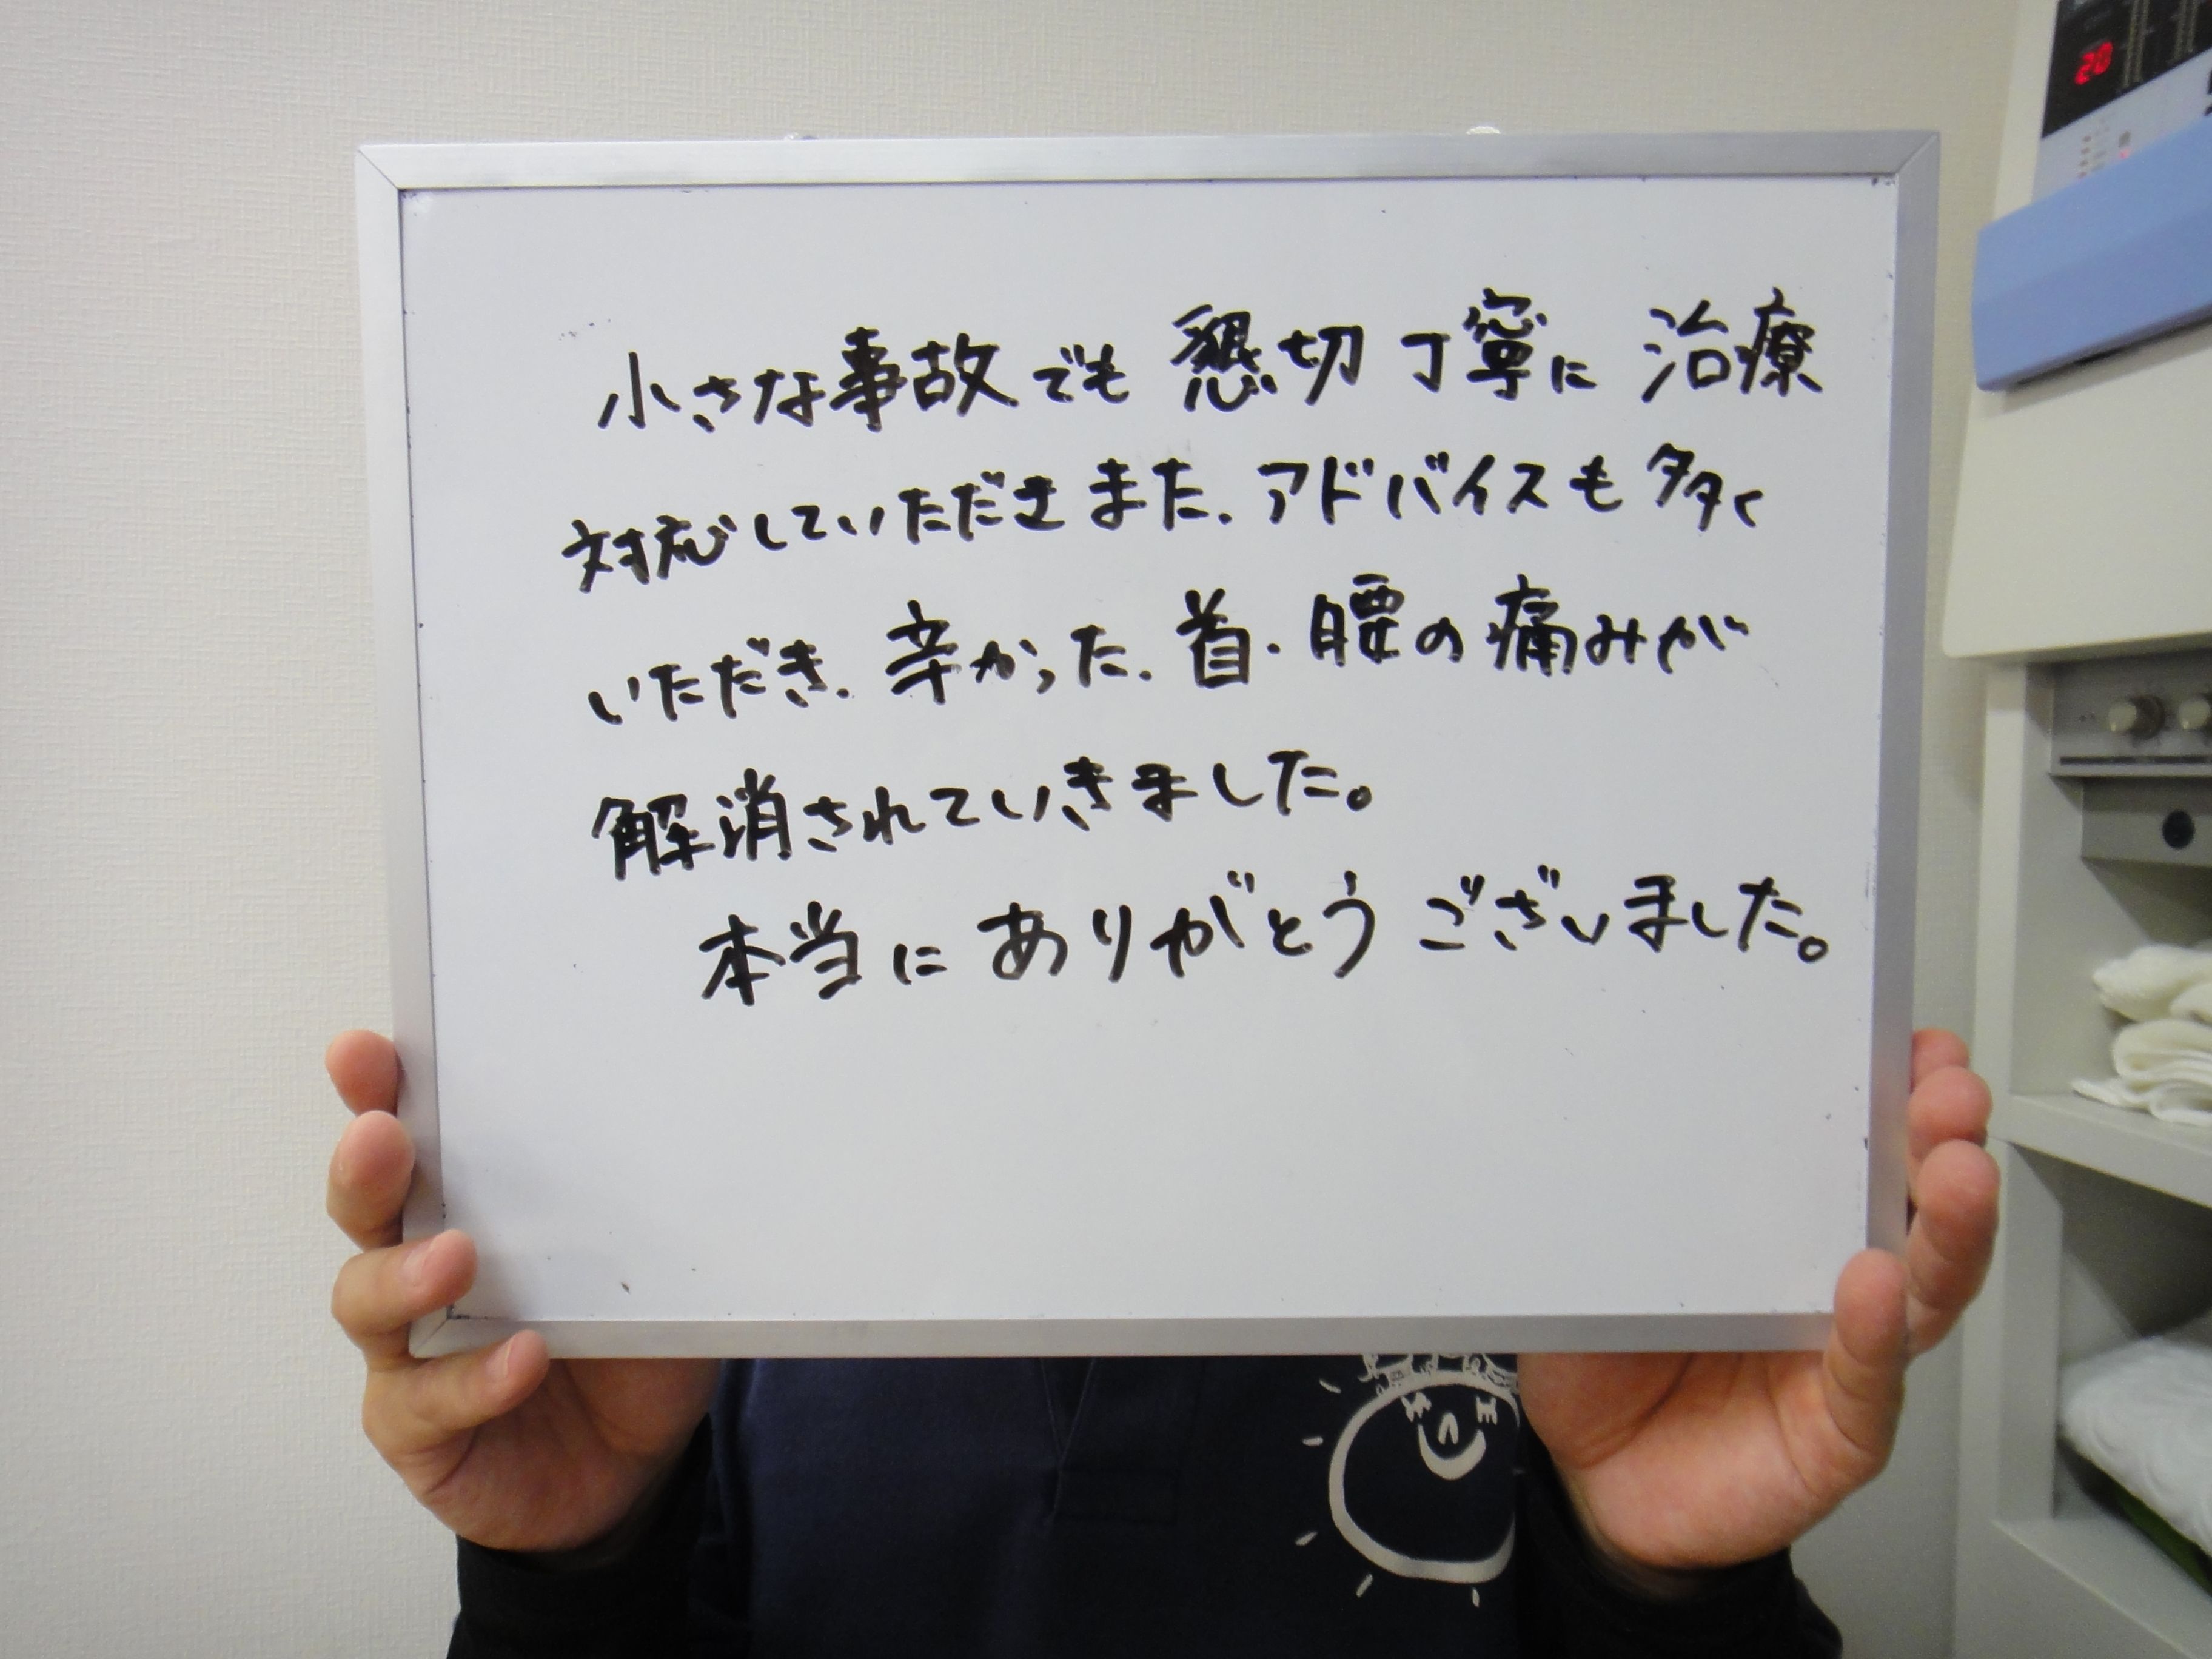 20
小さな事故でも 懇切丁寧に 治療
対応していただきまた、アドバイスも多く
いただき、辛かった、首・腰の痛みが
解消されていきました。
本当に ありがとう ございました。